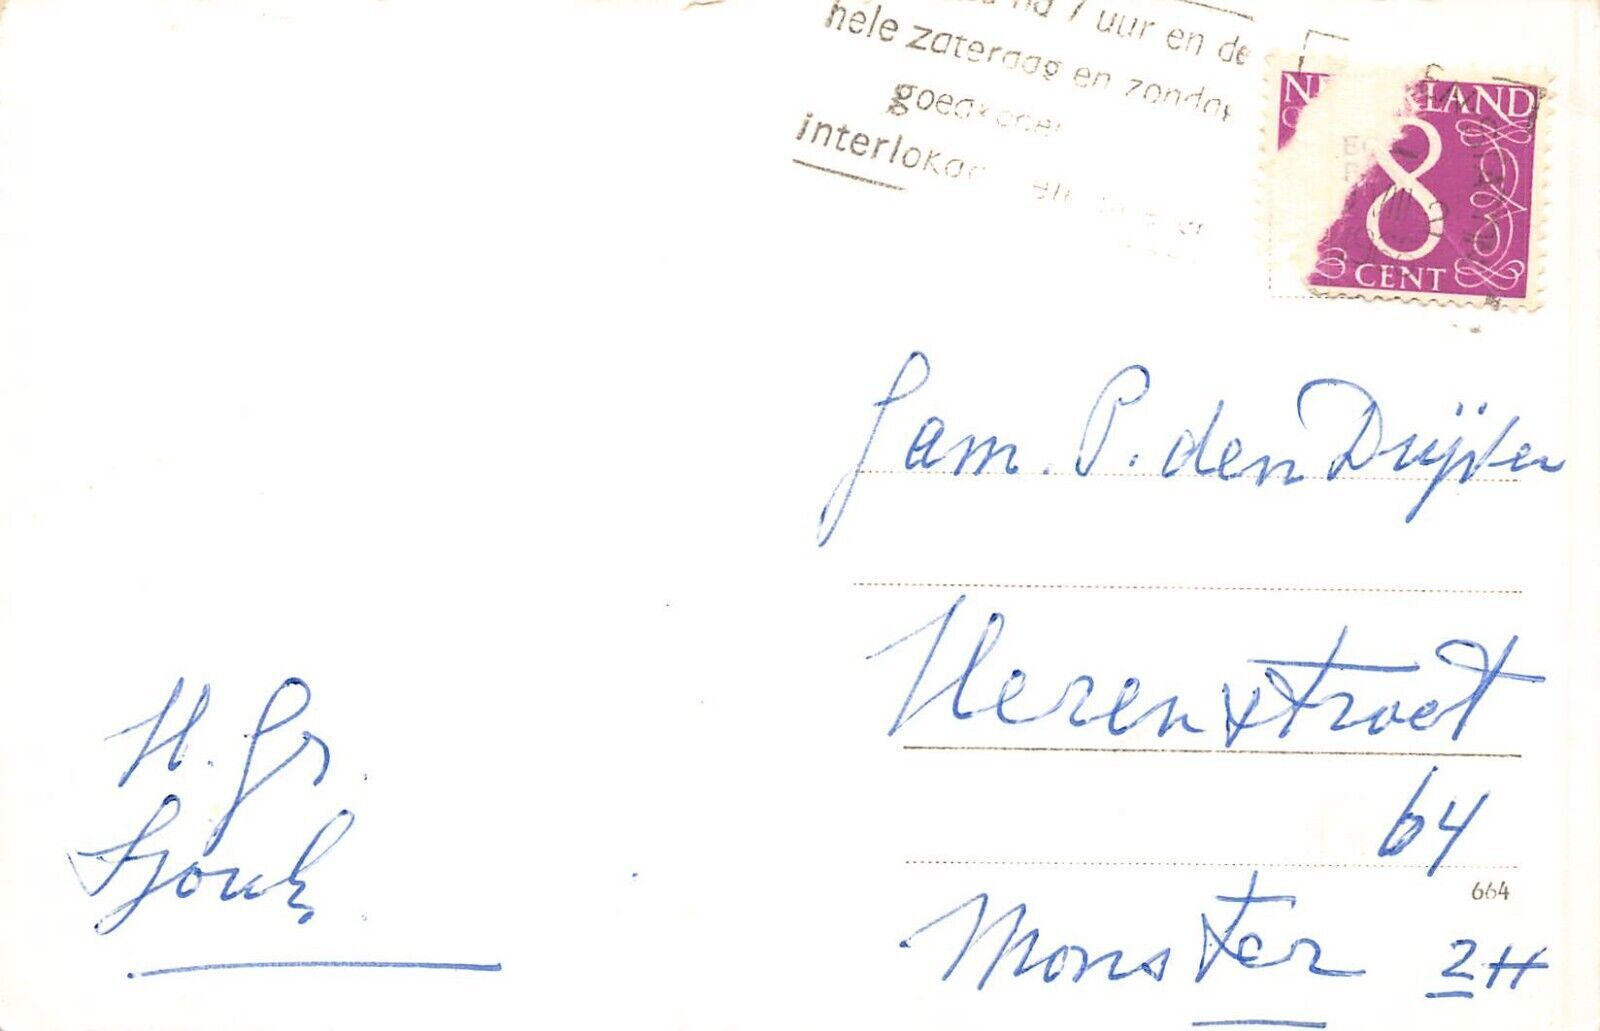 na 7 uur en de
hele zaterdag en zondag
goedkoper
interlokaal
NEDERLAND
8
CENT
Fam. P. den Duijven
Herenstraat
64
664
Monster ZH
H. Gr.